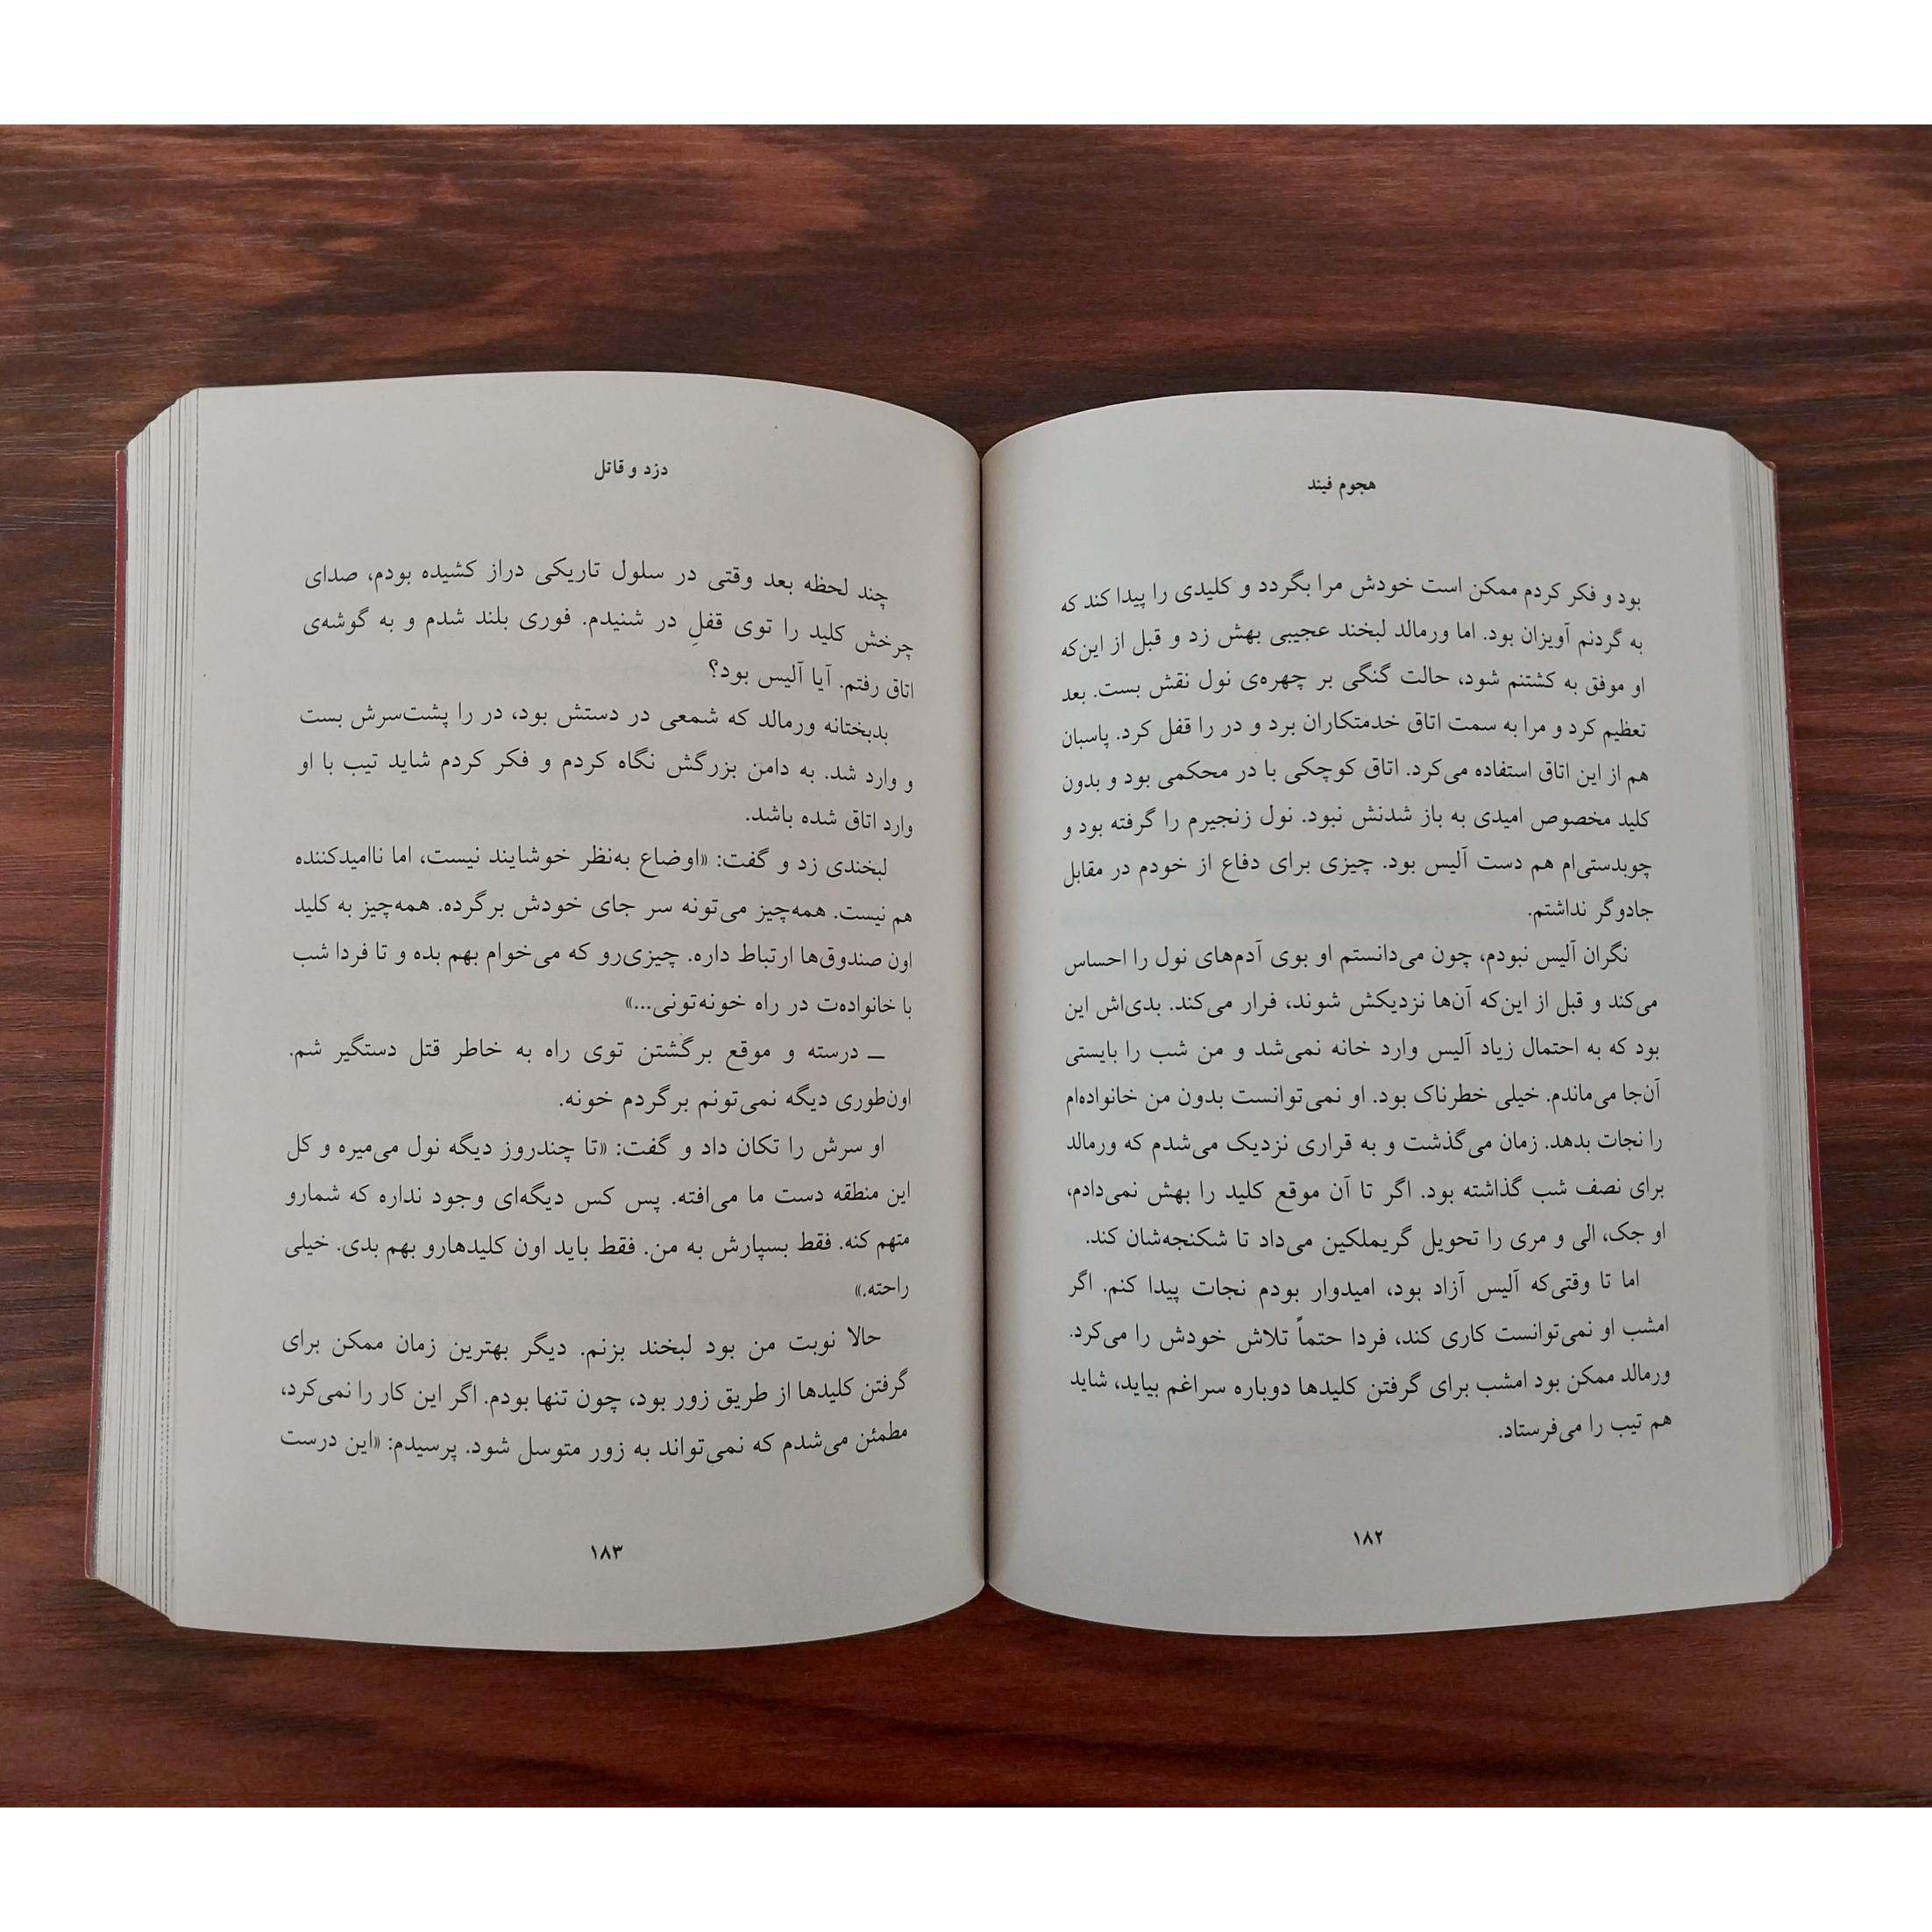 هجوم فیند
بود و فکر کردم ممکن است خودش مرا بگردد و کلیدی را پیدا کند که
به گردنم آویزان بود. اما ورمالد لبخند عجیبی بهش زد و قبل از این‌که
او موفق به کشتنم شود، حالت گنگی بر چهره‌ی نول نقش بست. بعد
تعظیم کرد و مرا به سمت اتاق خدمتکاران برد و در را قفل کرد. پاسبان
هم از این اتاق استفاده می‌کرد. اتاق کوچکی با در محکمی بود و بدون
کلید مخصوص امیدی به باز شدنش نبود. نول زنجیرم را گرفته بود و
چوبدستی‌ام هم دست آلیس بود. چیزی برای دفاع از خودم در مقابل
جادوگر نداشتم.
نگران آلیس نبودم، چون می‌دانستم او بوی آدم‌های نول را احساس
می‌کند و قبل از این‌که آن‌ها نزدیکش شوند، فرار می‌کند. بدی‌اش این
بود که به احتمال زیاد آلیس وارد خانه نمی‌شد و من شب را بایستی
آن‌جا می‌ماندم. خیلی خطرناک بود. او نمی‌توانست بدون من خانواده‌ام
را نجات بدهد. زمان می‌گذشت و به قراری نزدیک می‌شدم که ورمالد
برای نصف شب گذاشته بود. اگر تا آن موقع کلید را بهش نمی‌دادم،
او جک، الی و مری را تحویل گریملکین می‌داد تا شکنجه‌شان کند.
اما تا وقتی‌که آلیس آزاد بود، امیدوار بودم نجات پیدا کنم. اگر
امشب او نمی‌توانست کاری کند، فردا حتماً تلاش خودش را می‌کرد.
ورمالد ممکن بود امشب برای گرفتن کلیدها دوباره سراغم بیاید، شاید
هم تیب را می‌فرستاد.
۱۸۲
دزد و قاتل
چند لحظه بعد وقتی در سلول تاریکی دراز کشیده بودم، صدای
چرخش کلید را توی قفلِ در شنیدم. فوری بلند شدم و به گوشه‌ی
اتاق رفتم. آیا آلیس بود؟
بدبختانه ورمالد که شمعی در دستش بود، در را پشت‌سرش بست
و وارد شد. به دامن بزرگش نگاه کردم و فکر کردم شاید تیب با او
وارد اتاق شده باشد.
لبخندی زد و گفت: «اوضاع به‌نظر خوشایند نیست، اما ناامیدکننده
هم نیست. همه‌چیز می‌تونه سر جای خودش برگرده. همه‌چیز به کلید
اون صندوق‌ها ارتباط داره. چیزی‌رو که می‌خوام بهم بده و تا فردا شب
با خانواده‌ت در راه خونه‌تونی...»
ـ درسته و موقع برگشتن توی راه به خاطر قتل دستگیر شم.
اون‌طوری دیگه نمی‌تونم برگردم خونه.
او سرش را تکان داد و گفت: «تا چندروز دیگه نول می‌میره و کل
این منطقه دست ما می‌افته. پس کس دیگه‌ای وجود نداره که شمارو
متهم کنه. فقط بسپارش به من. فقط باید اون کلیدهارو بهم بدی. خیلی
راحته.»
حالا نوبت من بود لبخند بزنم. دیگر بهترین زمان ممکن برای
گرفتن کلیدها از طریق زور بود، چون تنها بودم. اگر این کار را نمی‌کرد،
مطمئن می‌شدم که نمی‌تواند به زور متوسل شود. پرسیدم: «این درست
۱۸۳